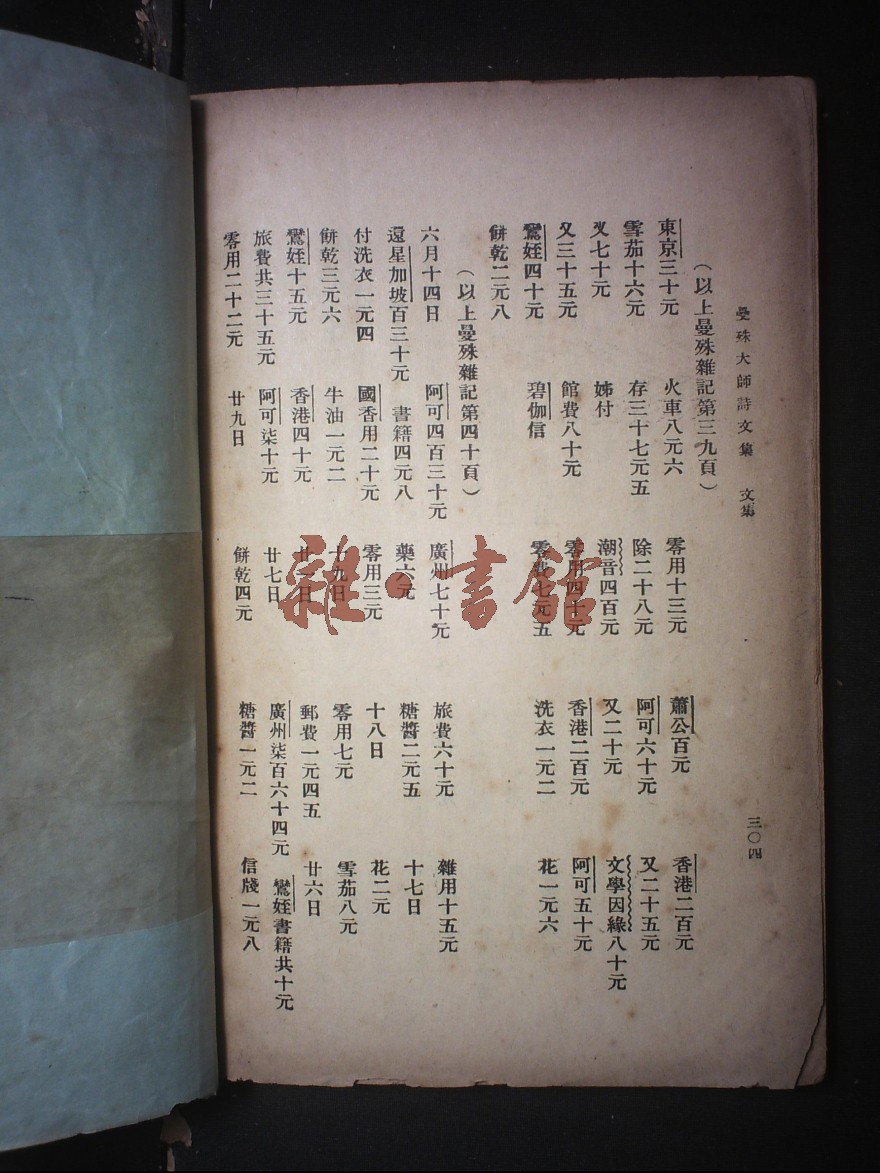 曼殊大師詩文集 文集 三〇四
(以上曼殊雜記第三九頁)
東京三十元 火車八元六 零用十三元 蕭公百元 香港二百元
雪茄十六元 存三十七元五 除二十八元 阿可六十元 又二十五元
又七十元 姊付 潮音四百元 又二十元 文學因緣八十元
又三十五元 館費八十元 零用四十元 香港二百元 阿可五十元
鸞姪四十元 碧伽信 零費七元五 洗衣一元二 花一元六
餅乾二元八
(以上曼殊雜記第四十頁)
六月十四日 阿可四百三十元 廣州七十元 旅費六十元 雜用十五元
還星加坡百三十元 書籍四元八 藥六元 糖醬二元五 十七日
付洗衣一元四 國香用二十元 零用三元 十八日 花二元
餅乾三元六 牛油一元二 十九日 零用七元 雪茄八元
鸞姪十五元 香港四十元 廿一日 郵費一元四五 廿六日
旅費共三十五元 阿可柒十元 廿七日 廣州柒百六十四元 鸞姪書籍共十元
零用二十二元 廿九日 餅乾四元 糖醬一元二 信牋一元八
雜·書館